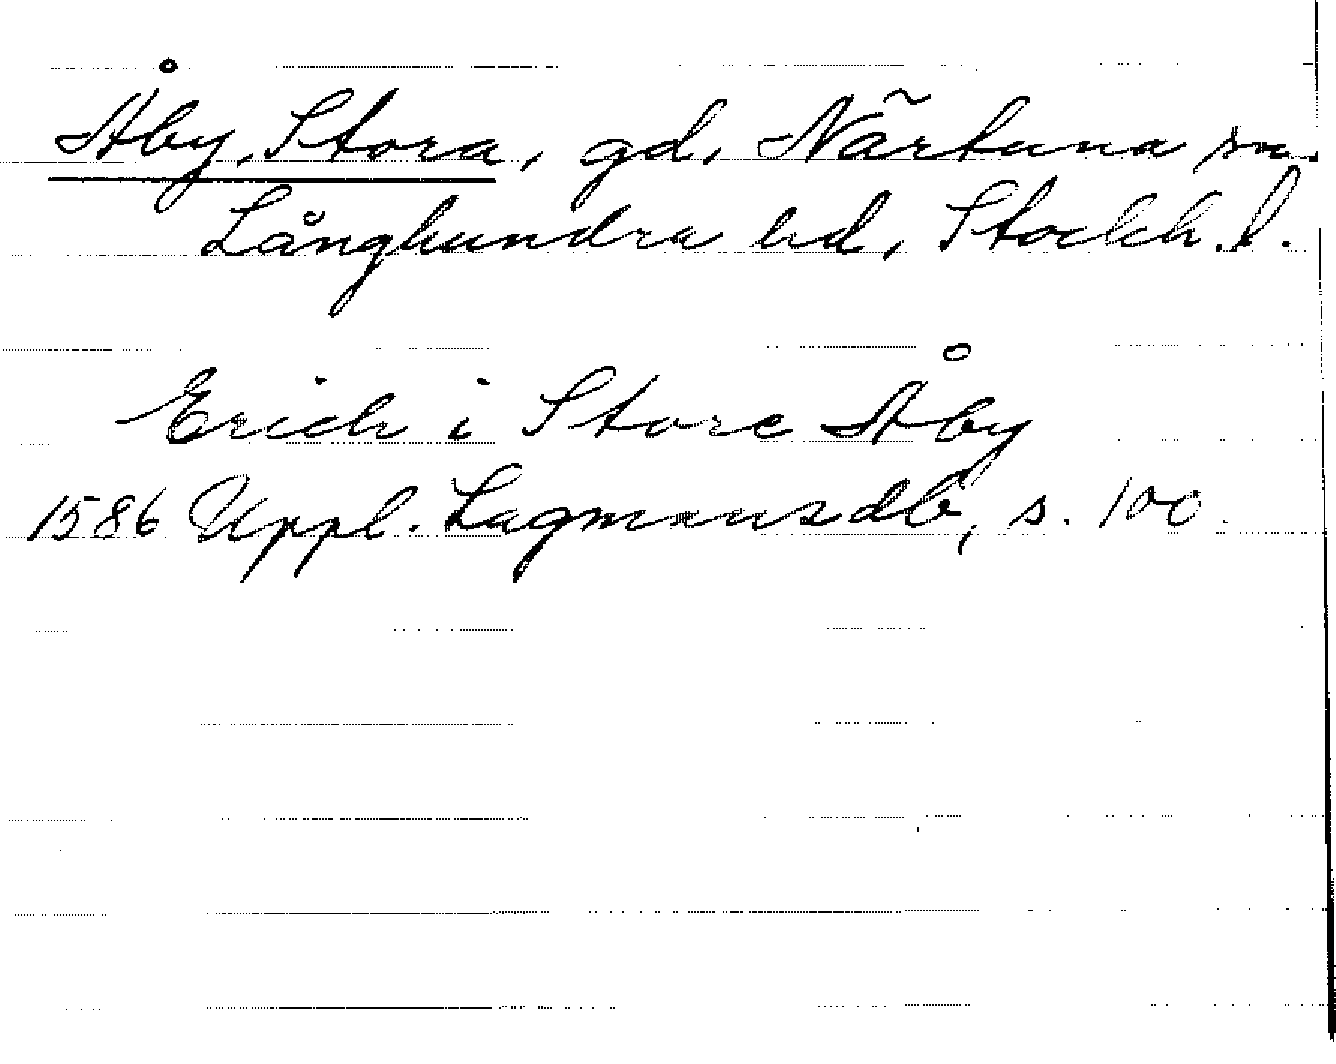 Åby, Stora, gd, Närtuna sn.
Långhundra hd, Stockh. l.
Erich i Store Åby
1586 Uppl. Lagmansdb, s. 100.